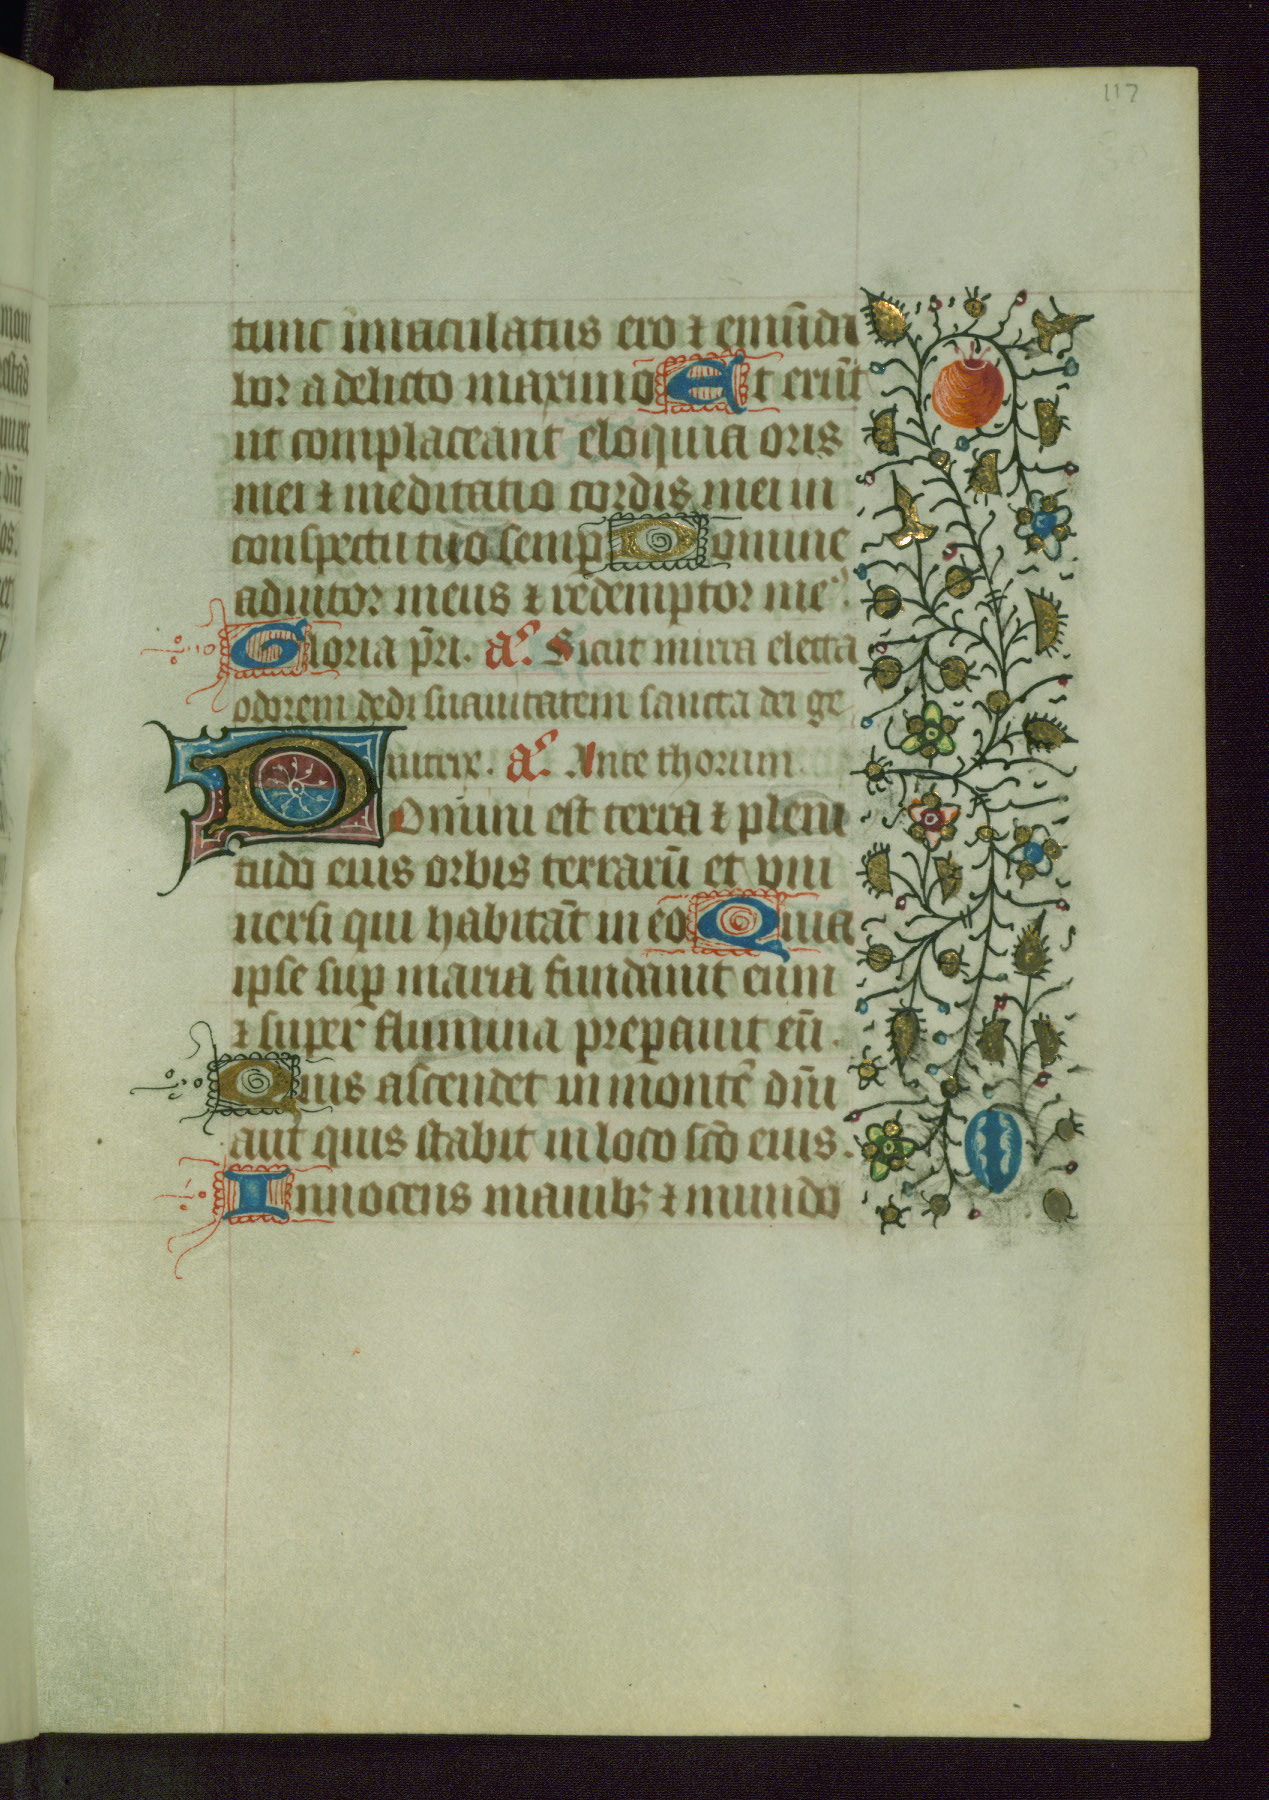 117
tunc imaculatus ero ⁊ emūda
bor a delicto maximo Et erūt
ut complaceant eloquia oris
mei ⁊ meditatio cordis mei in
conspectu tuo semꝑ Domine
adiutor meus ⁊ redemptor meꝰ.
Gloria pr̄i. a͞. Sicut mirra electa
odorem dedi suauitatem sancta dei ge
nitrix. a͞. Ante thorum.
Domini est terra ⁊ pleni
tudo eius orbis terrarū et vni
uersi qui habitāt in eo Quia
ipse suꝑ maria fundauit eum
⁊ super flumina preꝑauit eū.
Quis ascendet in montē dn̄i
aut quis stabit in loco sc̄o eius.
Innocens manibꝫ ⁊ mundo